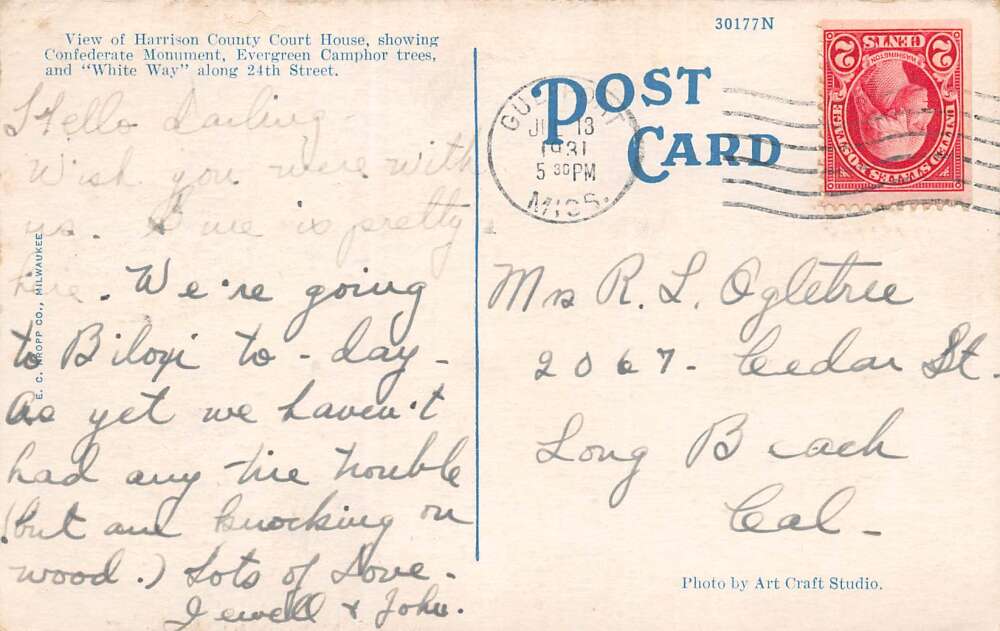 View of Harrison County Court House, showing
Confederate Monument, Evergreen Camphor trees,
and "White Way" along 24th Street.
30177N
POST
CARD
GULFPORT
JUL 13
1931
5 30 PM
MISS.
2 CENTS 2
WASHINGTON
UNITED STATES POSTAGE
Hello Darling -
Wish you were with
us. is pretty
here. We're going
to Biloxi to-day -
As yet we haven't
had any tire trouble
(but am knocking on
wood.) Lots of Love.
Jewell & John.
E. C. KROPP CO., MILWAUKEE
Mrs R. L. Ogletree
2067 - Cedar St.
Long Beach
Cal -
Photo by Art Craft Studio.